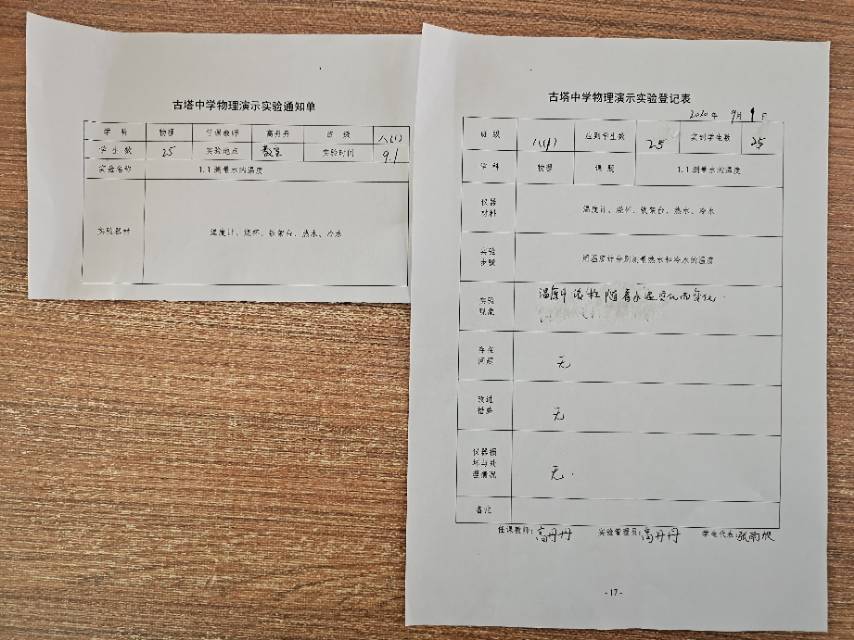 古塔中学物理演示实验通知单
学 科 物理 任课教师 高丹丹 班 级 八(1)
学 生 数 25 实验地点 教室 实验时间 9.1
实验名称 1.1测量水的温度
实验器材 温度计、烧杯、铁架台、热水、冷水
古塔中学物理演示实验登记表
2020年 9月 1日
班 级 八(1) 应到学生数 25 实到学生数 25
学 科 物理 课 题 1.1测量水的温度
仪器
材料
温度计、烧杯、铁架台、热水、冷水
实验
步骤
用温度计分别测量热水和冷水的温度
实验
效果
温度计液柱随着水温变化而变化.
存在
问题
无
改进
措施
无
仪器损
坏与处
理情况
无.
备注
任课教师:高丹丹 实验管理员:高丹丹 学生代表:张
-17-